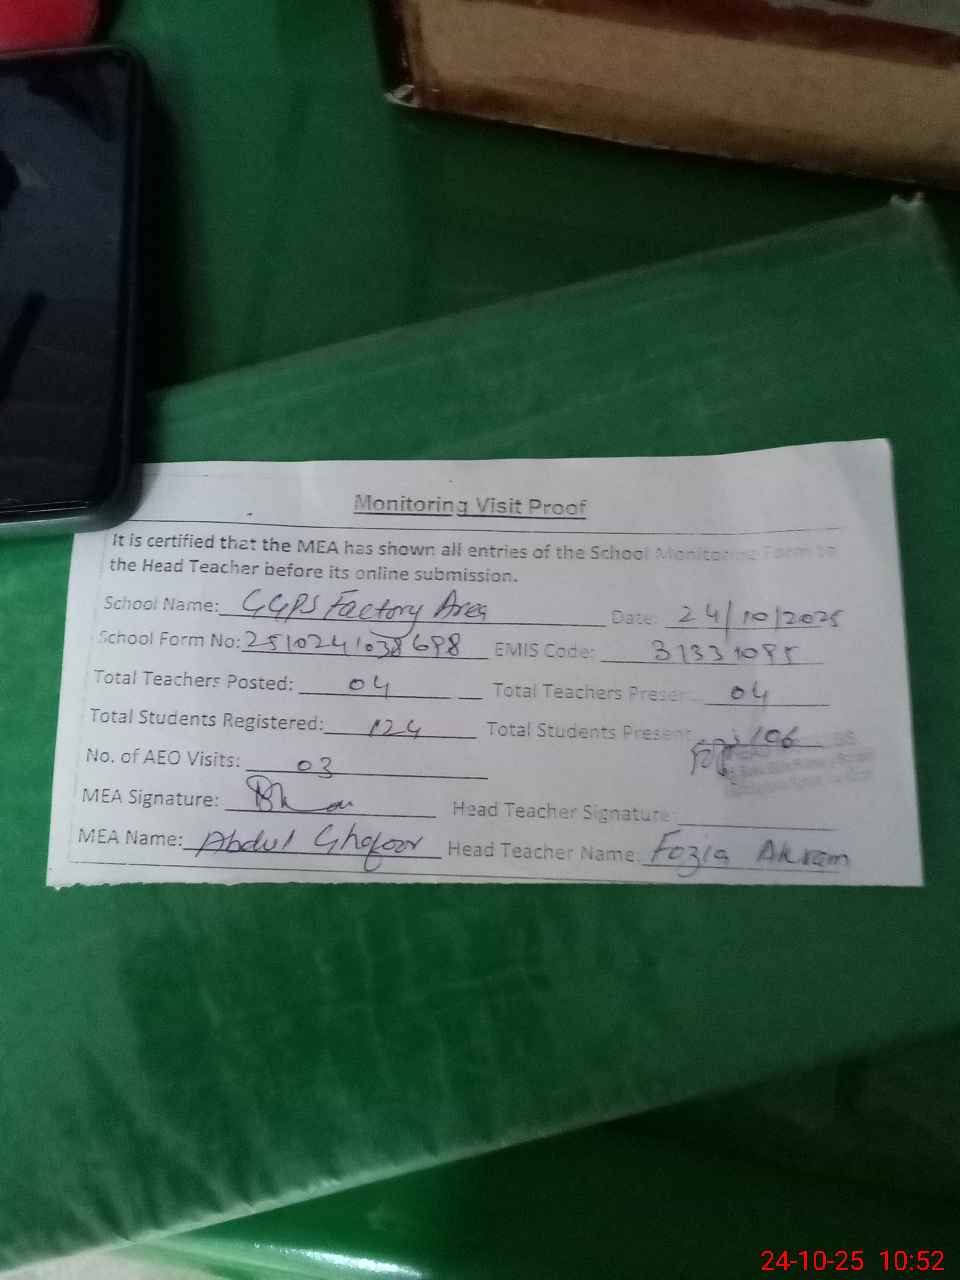 Monitoring Visit Proof
It is certified that the MEA has shown all entries of the School Monitoring Form to
the Head Teacher before its online submission.
School Name: GGPS Factory Area Date: 24/10/2025
School Form No: 2510241038698 EMIS Code: 31331095
Total Teachers Posted: 04 Total Teachers Present 04
Total Students Registered: 124 Total Students Present 106
No. of AEO Visits: 03
MEA Signature: Head Teacher Signature:
MEA Name: Abdul Ghafoor Head Teacher Name: Fozia Akram
24-10-25 10:52